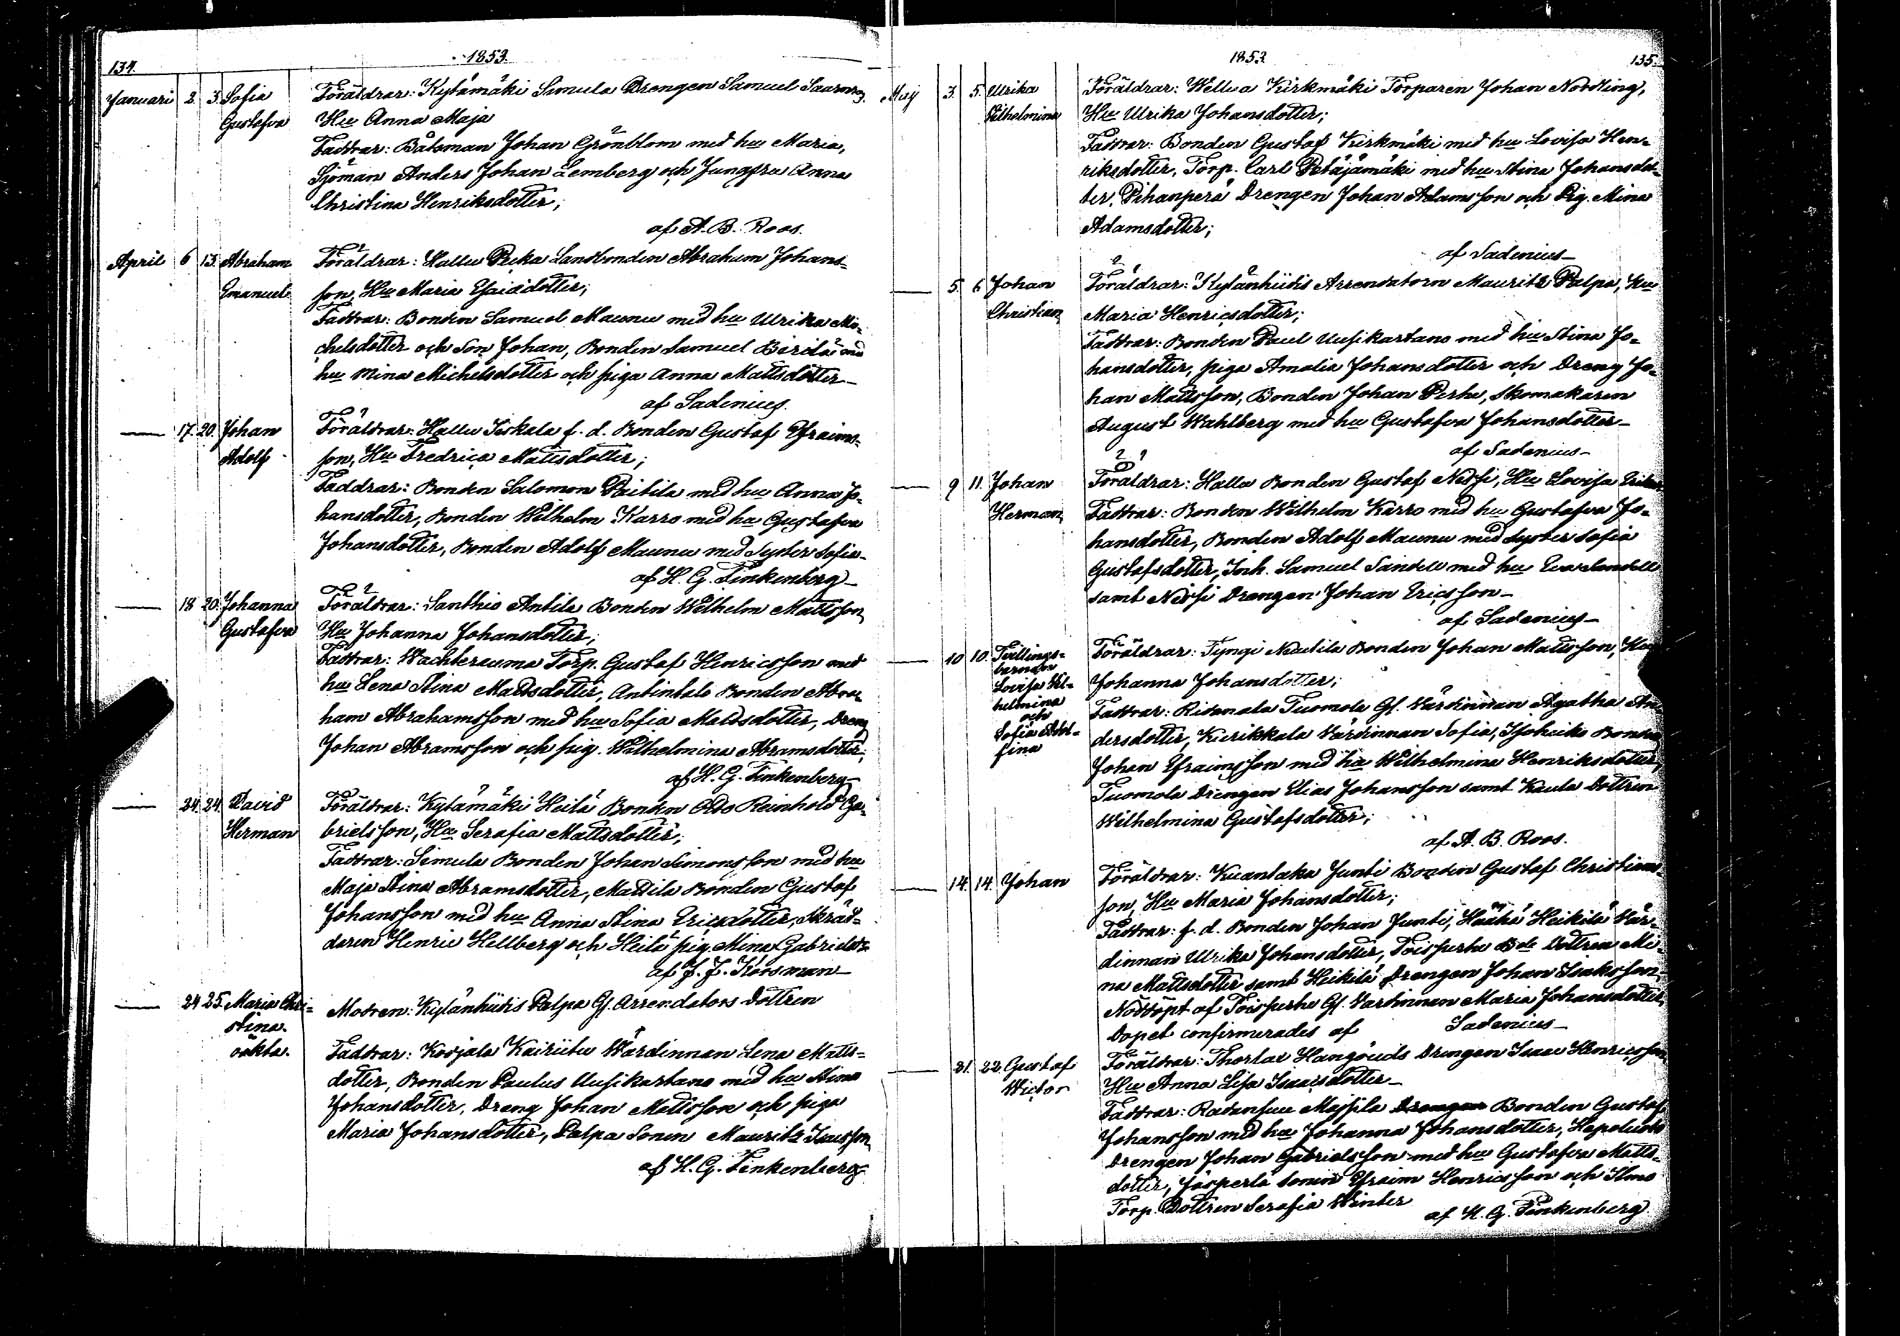 134.
1853.
Januari 2. 3. Sofia Gustafva
Föräldrar: Kylämäki Simula Drengen Samuel Saarni,
Hu Anna Maja
Faddrar: Båtsman Johan Grönblom med hu Maria,
Sjöman Anders Johan Lemberg och Jungfru Anna
Christina Henriksdotter;
af A. B. Roos.
April 6 13. Abraham Emanuel
Föräldrar: Hallu Pryka Landbonden Abraham Johans-
son, Hu Maria Esaidotter;
Faddrar: Bonden Samuel Maunu med hu Ulrika Mi-
chelsdotter och Son Johan, Bonden Samuel Birilä med
hu Mina Michelsdotter och piga Anna Mattsdotter
af Sadenius.
17. 20. Johan Adolf
Föräldrar: Hallu Seskala f. d. Bonden Gustaf Efraims-
son, Hu Fredrica Mattsdotter;
Faddrar: Bonden Salomon Paitila med hu Anna Jo-
hansdotter, Bonden Wilhelm Karro med hu Gustafva
Johansdotter, Bonden Adolf Maunu med Syster Sofia
af H. G. Finkenberg
18 20. Johanna Gustafva
Föräldrar: Santhio Antila Bonden Wilhelm Mattsson
Hu Johanna Johansdotter;
Faddrar: Wachterauma Torp. Gustaf Henricsson med
hu Lena Stina Mattsdotter, Antintalo Bonden Abra-
ham Abrahamsson med hu Sofia Mattsdotter, Dreng
Johan Abramsson och pig. Wilhelmina Abramsdotter,
af H. G. Finkenberg
24. 24. David Herman
Föräldrar: Kylämäki Heilä Bonden Ado Reinhold Ga-
brielsson, Hu Serafia Mattsdotter;
Faddrar: Simula Bonden Johan Simonsson med hu
Maja Stina Abramsdotter, Mattila Bonden Gustaf
Johansson med hu Anna Stina Ericsdotter, Skräd-
daren Henric Hellberg och Heilä pig. Mina Gabrielsdr
af J. J. Korsman
24 25. Maria Chri-
stina.
oäkta.
Modren: Kylänhiitis Palpa Gl. Arrendators Dottren
Faddrar: Kodjala Kairiitu Wärdinnan Lena Matts-
dotter, Bonden Paulus Uusikartano med hu Stina
Johansdotter, Dreng Johan Mattsson och piga
Maria Johansdotter, Palpa Sonen Mauritz Isacsson
af H. G. Finkenberg
1853
135.
Maij 3. 5. Ulrika Wilhelmina
Föräldrar: Wellua Kirkmäki Torparen Johan Nordling,
Hu Ulrika Johansdotter;
Faddrar: Bonden Gustaf Kirkmäki med hu Lovisa Hen-
riksdotter, Torp. Carl Petäjämäki med hu Stina Johansdot-
ter, Pihanperä Drengen Johan Adamsson och Pig. Mina
Adamsdotter;
af Sadenius
5. 6 Johan Christian
Föräldrar: Kylänhiitis Arrendatorn Mauritz Palpa, Hu
Maria Henricsdotter;
Faddrar: Bonden Paul Uusikartano med hu Stina Jo-
hansdotter, piga Amalia Johansdotter och Dreng Jo-
han Mattsson, Bonden Johan Perho, Skomakaren
August Wahlberg med hu Gustafva Johansdotter
af Sadenius
9 11. Johan Herman
Föräldrar: Hallu Bonden Gustaf Nessi, Hu Lovisa
Faddrar: Bonden Wilhelm Karro med hu Gustafva Jo-
hansdotter, Bonden Adolf Maunu med Syster Sofia
Gustafsdotter, Inh. Samuel Sandell med hu Eva Sandell
samt Nessi Drengen Johan Ericsson
af Sadenius
10 10. Tvillings-
barnen
Lovisa Wil-
helmina
och
Sofia Adol-
fina
Föräldrar: Tyngi Nautila Bonden Johan Mattsson, Hu
Johanna Johansdotter;
Faddrar: Ritamala Tuomola Gl. Wärdinnan Agatha An-
dersdotter, Kierikkala Wärdinnan Sofia, Bonden
Johan Efraimsson med hu Wilhelmina Henriksdotter,
Tuomola Drengen Elias Johansson samt Kaula Dottren
Wilhelmina Gustafsdotter;
af A. B. Roos.
14. 14. Johan
Föräldrar: Kuanlaka Junti Bonden Gustaf Christians-
son, Hu Maria Johansdotter;
Faddrar: f. d. Bonden Johan Junti, Haukä Heikilä Wär-
dinnan Ulrika Johansdotter, Torsperhe Bde Dottren Mi-
na Mattsdotter samt Heikilä Drengen Johan Isaksson,
Nöddöpt af Torsperhe Gl. Wärdinnan Maria Johansdotter,
Dopet confirmerades af Sadenius
21. 22. Gustaf Wictor
Föräldrar: Thorlax Hangöuds Drengen Isaac Henricsson
Hu Anna Lisa Isaacsdotter
Faddrar: Radansuu Majsila Drengen Bonden Gustaf
Johansson med hu Johanna Johansdotter, Hapoluoto
Drengen Johan Gabrielsson med hu Gustafva Matts-
dotter, Jäsperlä Sonen Efraim Henricsson och Ilmo
Torp. Dottren Serafia Winter
af H. G. Finkenberg